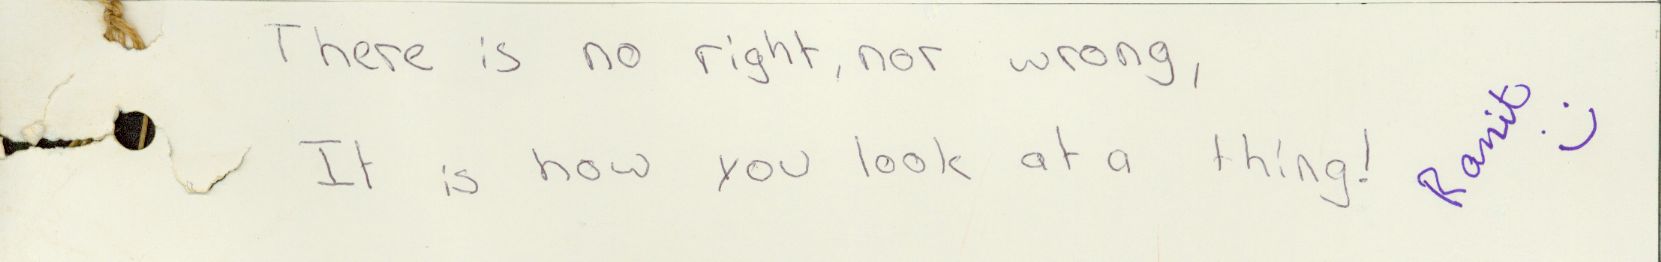 There is no right, nor wrong,
It is how you look at a thing!
Ranit :)